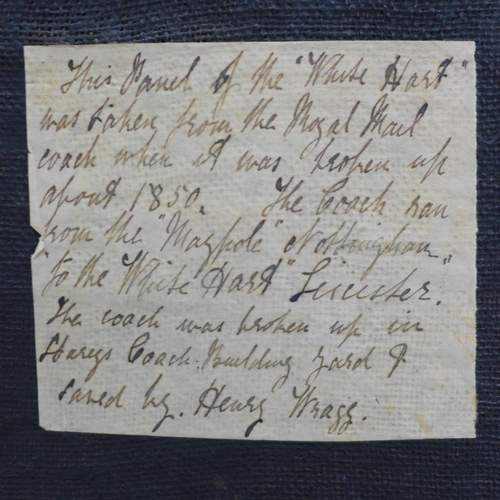 This Panel of the "White Hart"
was taken from the Royal Mail
coach when it was broken up
about 1850. The Coach ran
from the "Maypole" Nottingham
to the "White Hart" Leicester.
The coach was broken up in
Coach Building yard &
saved by. Henry Wragg.